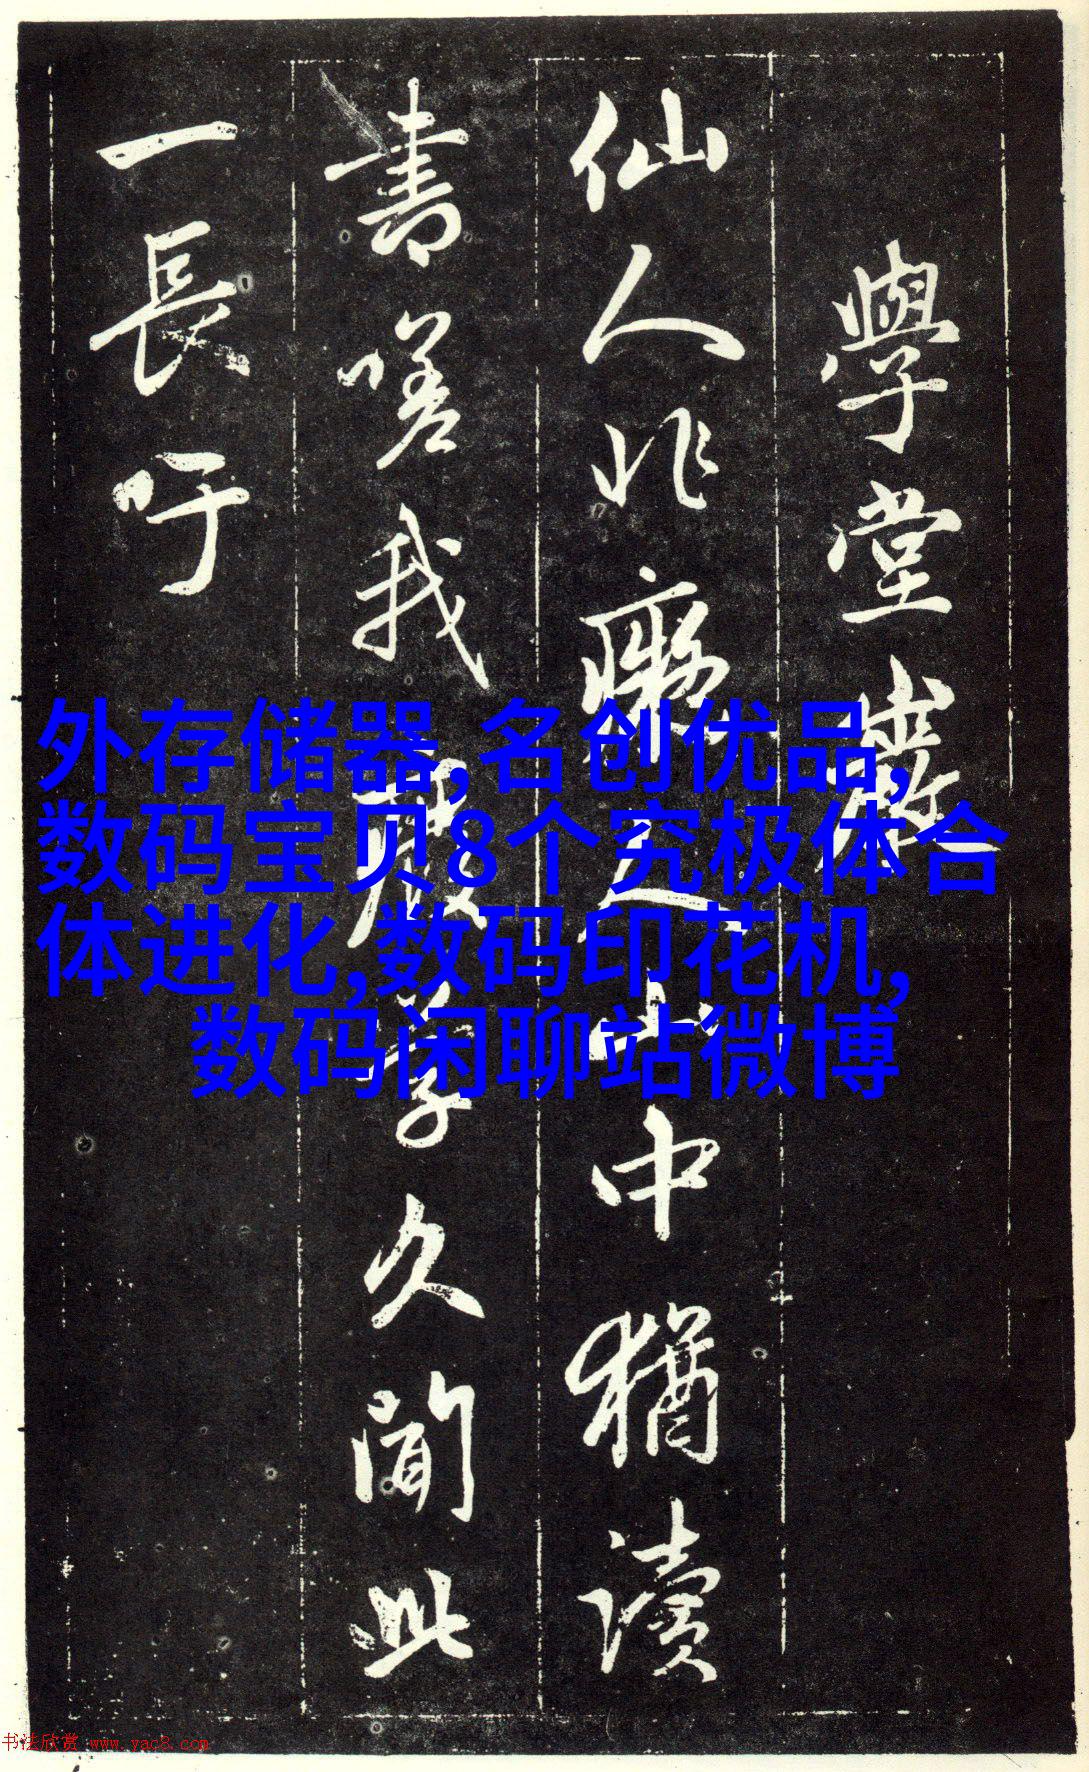 學堂巖
仙人非癡人山中猶讀
書嗟我廢學久聞此
一長吁
外存储器,名创优品,
数码宝贝8个究极体合
体进化,数码印花机,
数码闲聊站微博
书法欣赏 www.yac8.com